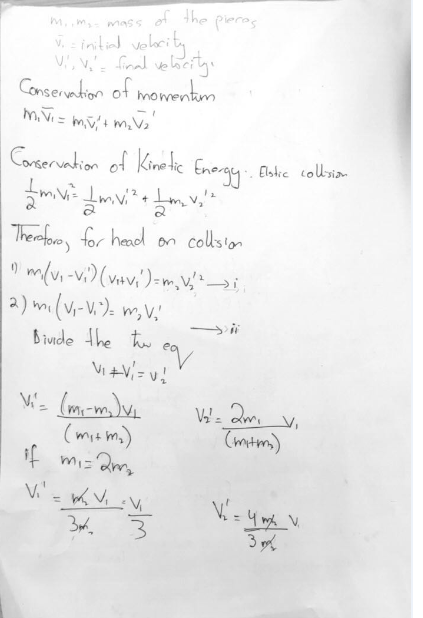 m₁, m₂ = mass of the pieces
v̄₁ = initial velocity
V₁', V₂' = final velocity.
Conservation of momentum
m₁V̄₁ = m₁V̄₁' + m₂V̄₂'
Conservation of Kinetic Energy ∴ Elstic collision
1/2 m₁V₁² = 1/2 m₁V₁'² + 1/2 m₂V₂'²
Therefore, for head on collision
1) m₁(V₁-V₁')(V₁+V₁') = m₂V₂'² → i
2) m₁(V₁-V₁') = m₂V₂' → ii
Divide the two eq
V₁+V₁' = V₂'
V₁' = (m₁-m₂)V₁/(m₁+m₂) V₂' = 2m₁/(m₁+m₂) V₁
if m₁ = 2m₂
V₁' = m₂V₁/3m₂ = V₁/3 V₂' = 4m₂/3m₂ V₁